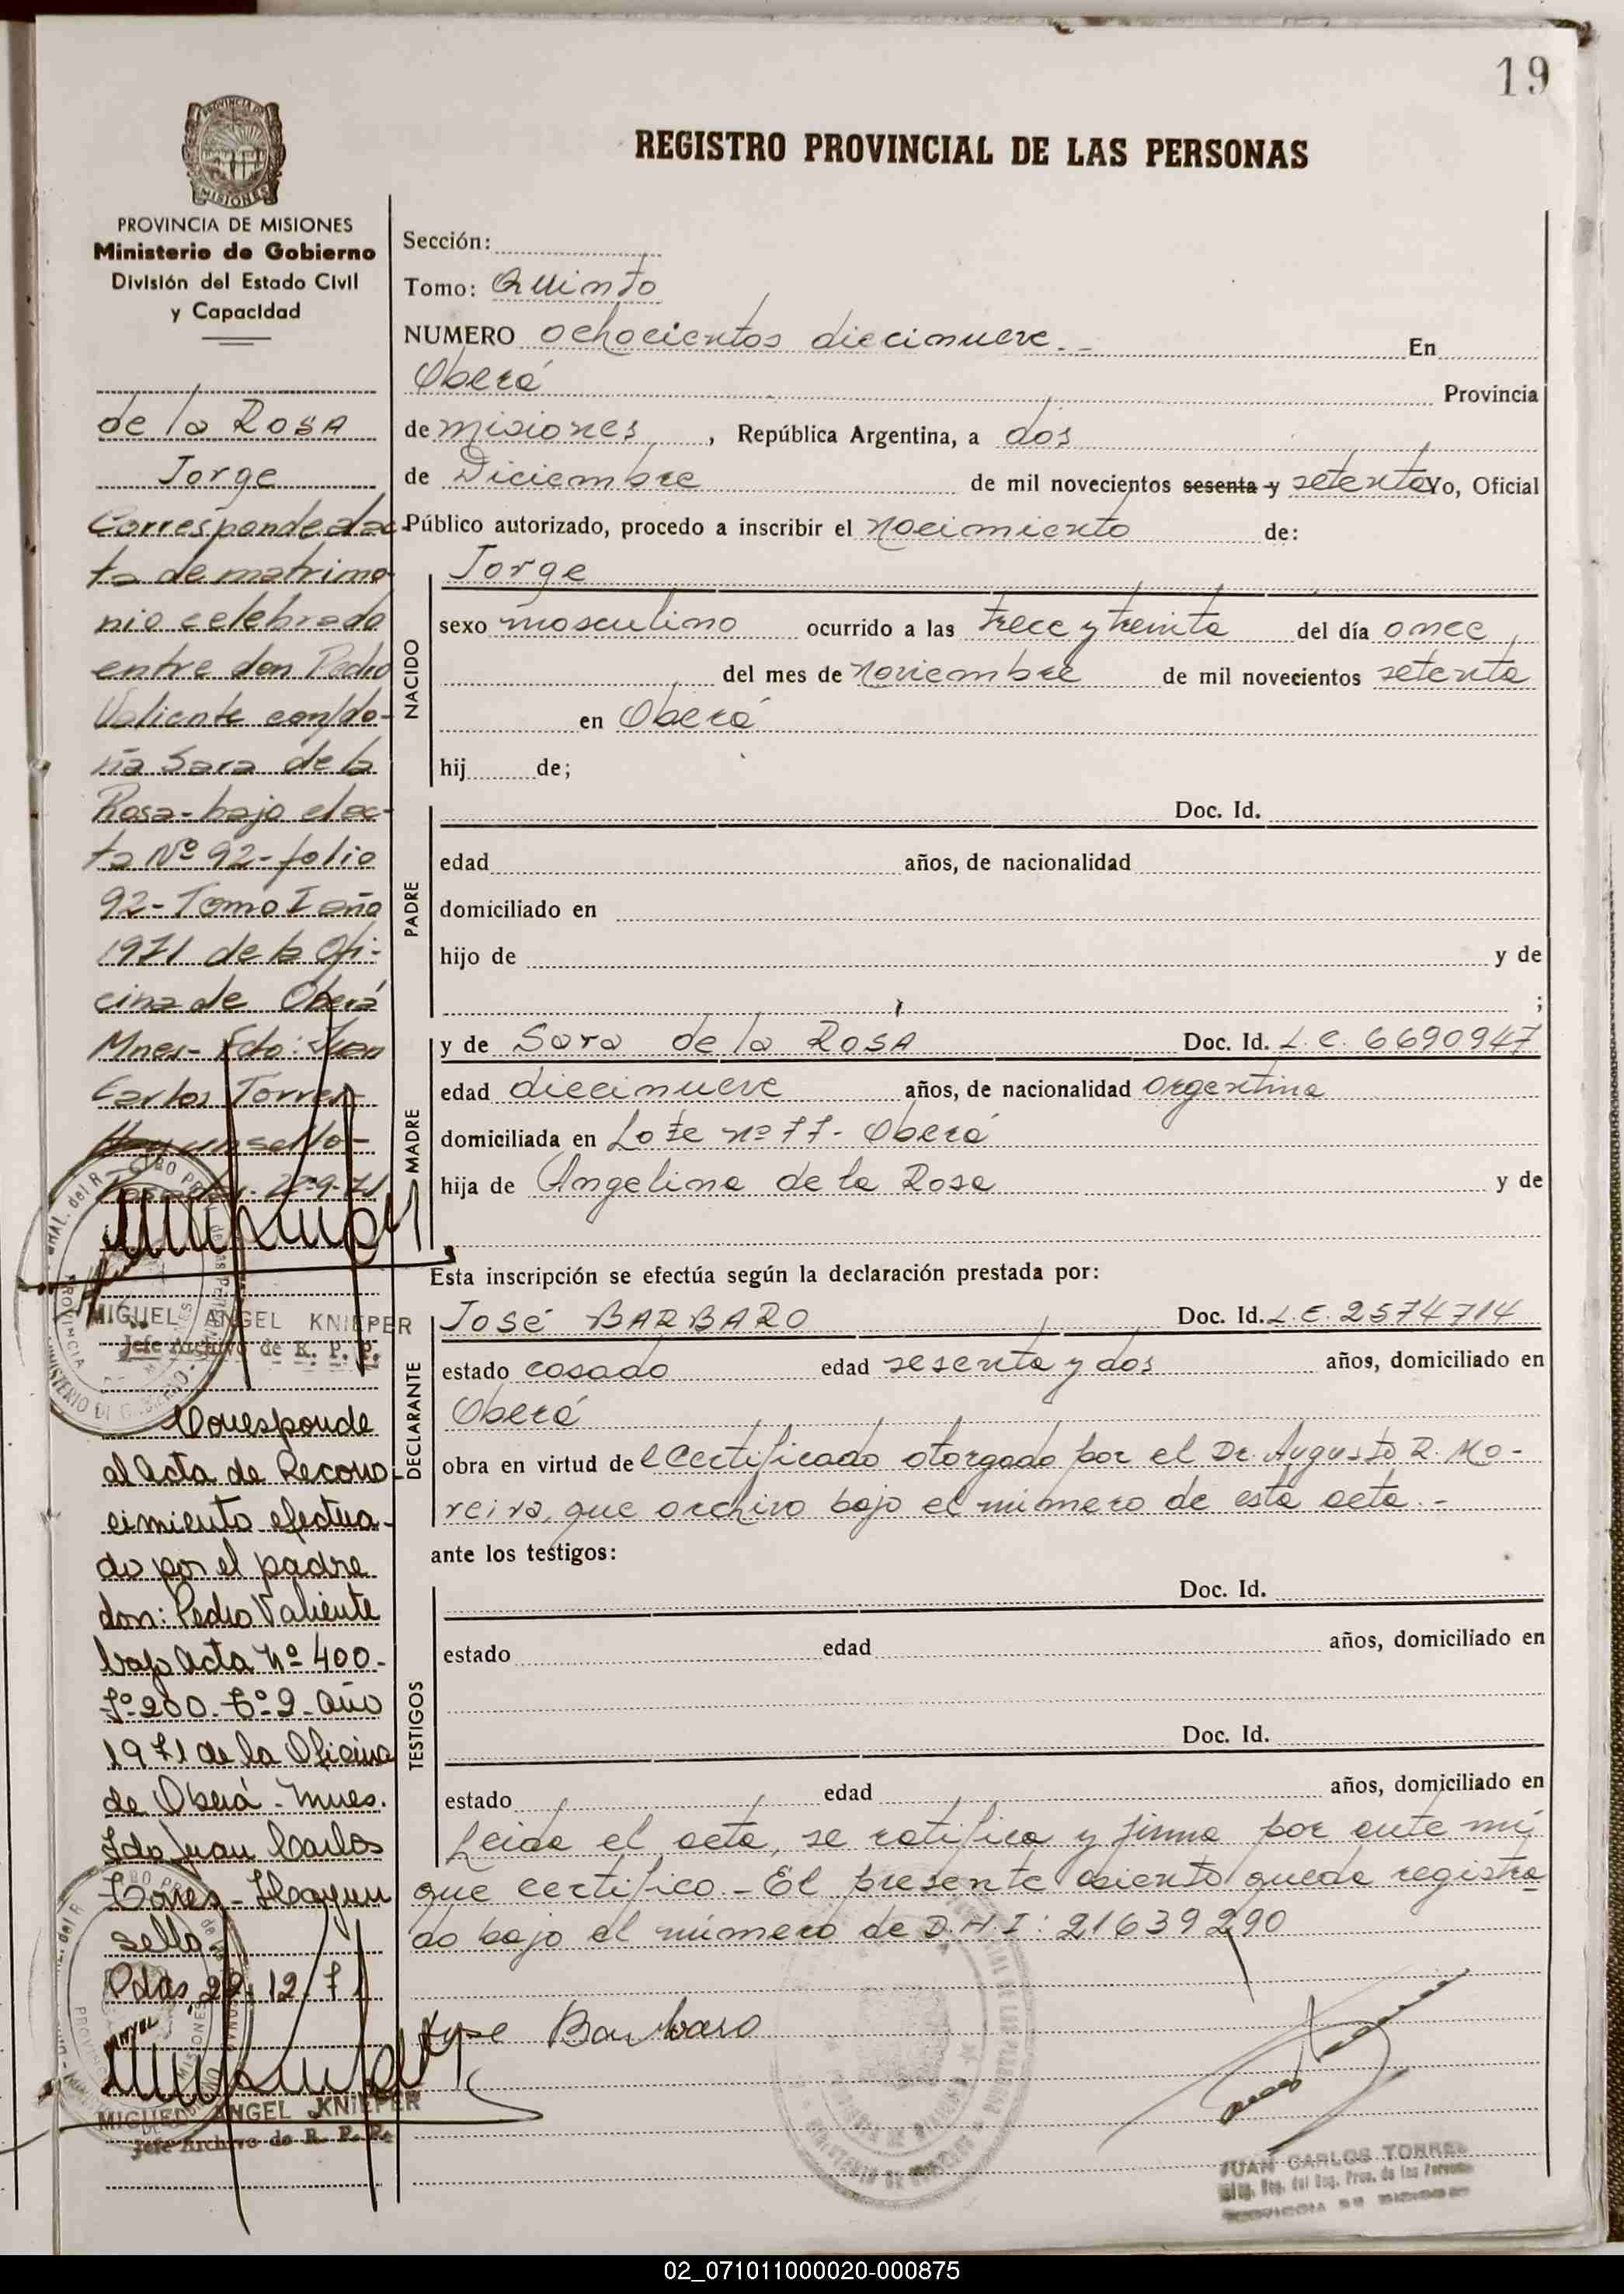 19
REGISTRO PROVINCIAL DE LAS PERSONAS
PROVINCIA DE MISIONES
Ministerio de Gobierno
División del Estado Civil
y Capacidad
de la ROSA
Jorge
Corresponde al ac-
ta de matrimo
nio celebrado
entre don Pedro
Valiente con do-
ña Sara de la
Rosa - bajo el ac-
ta Nº 92 - folio
92 - Tomo I año
1971 de la Ofi-
cina de Oberá
Mnes - Fdo: Juan
Carlos Torres
Hay un sello -
22-9-71
MIGUEL ANGEL KNIEPER
Jefe Archivo de R. P. P.
Corresponde
al Acta de Recono-
cimiento efectua-
do por el padre
don: Pedro Valiente
bajo Acta Nº 400-
Fº 200. Tº 2. Año
1971 de la Oficina
de Oberá - Mnes.
Fdo Juan Carlos
Torres - Hay un
sello
Pdas, 29.12.71
MIGUEL ANGEL KNIEPER
Jefe Archivo de R. P. P.
Sección:
Tomo: Quinto
NUMERO ochocientos diecinueve.- En
Oberá Provincia
de Misiones, República Argentina, a dos
de Diciembre de mil novecientos sesenta y setenta Yo, Oficial
Público autorizado, procedo a inscribir el nacimiento de:
NACIDO
Jorge
sexo masculino ocurrido a las trece y treinta del día once,
del mes de noviembre de mil novecientos setenta
en Oberá
hij de;
PADRE
Doc. Id.
edad años, de nacionalidad
domiciliado en
hijo de y de
;
MADRE
y de Sara de la ROSA Doc. Id. L.C. 6690947
edad diecinueve años, de nacionalidad argentina
domiciliada en Lote nº 77- Oberá
hija de Angelina de la Rosa y de
Esta inscripción se efectúa según la declaración prestada por:
DECLARANTE
José BARBARO Doc. Id. L.E. 2574714
estado casado edad sesenta y dos años, domiciliado en
Oberá
obra en virtud de el Certificado otorgado por el Dr. Augusto R. Mo-
reira, que archivo bajo el número de esta acta.-
ante los testigos:
TESTIGOS
Doc. Id.
estado edad años, domiciliado en
Doc. Id.
estado edad años, domiciliado en
Leida el acta, se ratifica y firma por ante mí
que certifico.- El presente asiento queda registra
do bajo el número de D.N.I: 21639290
Jose Barbaro
JUAN CARLOS TORRES
02_071011000020-000875